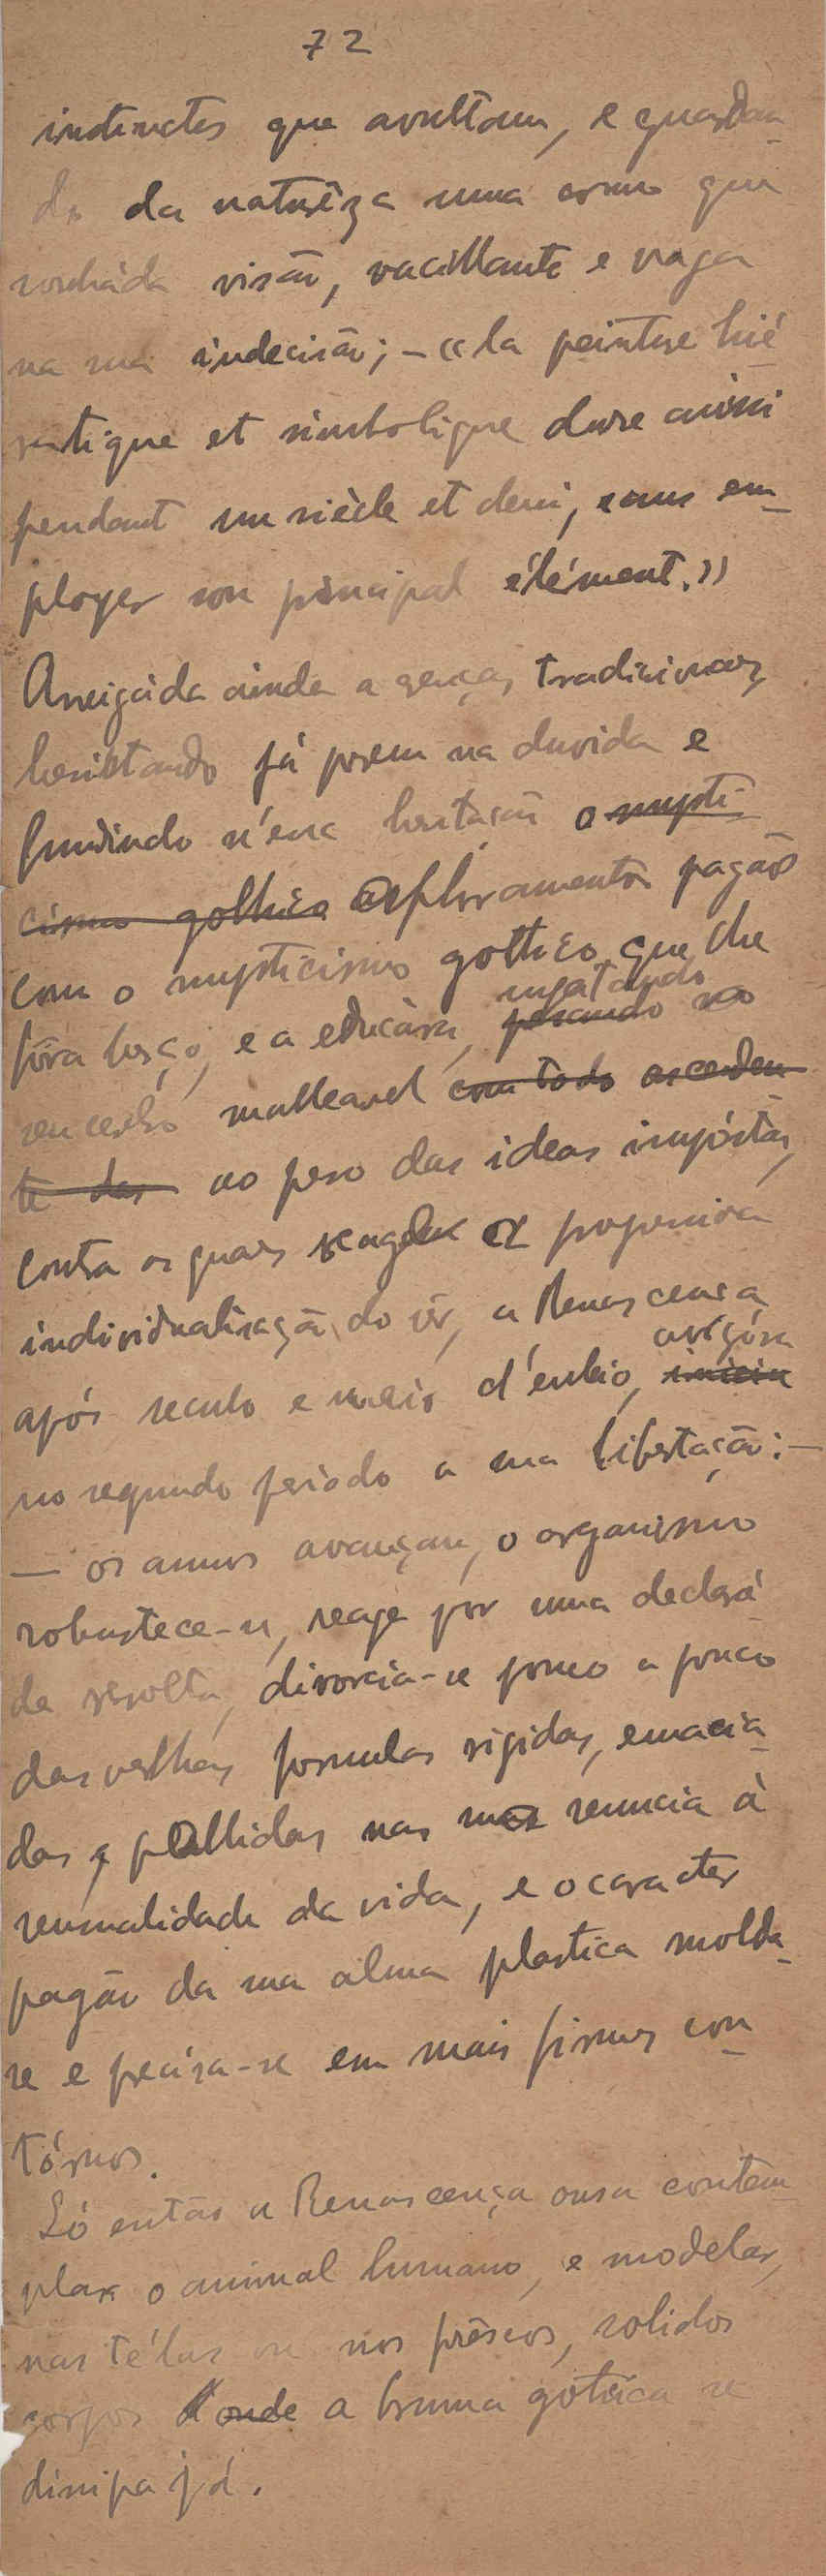 72
instinctos que avultam, e guardan-
do da naturêza uma como que
sonháda visão, vacillante e vaga
na sua indecisão; – «la peinture hié
ratique et simbolique dure aussi
pendant un siècle et demi, sans em-
ployer son principal élément.»
Arreigáda ainda a crenças tradicionaes,
hesitando já porem na duvida e
fundindo n'essa hesitação o mysti-
cismo gothico afloramento pagão
com o mysticismo gothico que lhe
fôra berço, e a educára,
engatando
pesando no
seu cerebro malleavel com todo ascenden-
te das ao peso das ideas impóstas,
contra as quaes reage a progressiva
individualisação do sêr, a Renascença
após seculo e meio d'enleio,
avigóra
inicia
no segundo periodo a sua libertação: –
– os annos avançam, o organismo
robustece-se, reage por uma declará
da revolta, divorcia-se pouco a pouco
das velhas formulas rigidas, emacia-
das e pallidas nas suas renuncia á
sensualidade da vida, e o caracter
pagão da sua alma plastica molda-
se e precisa-se em mais firmes con-
tórnos.
Só então a Renascença ousa contem-
plar o animal humano, e modelar,
nas télas ou nos frêscos, solidos
corpos d'onde a bruma gotica se
dissipa já.